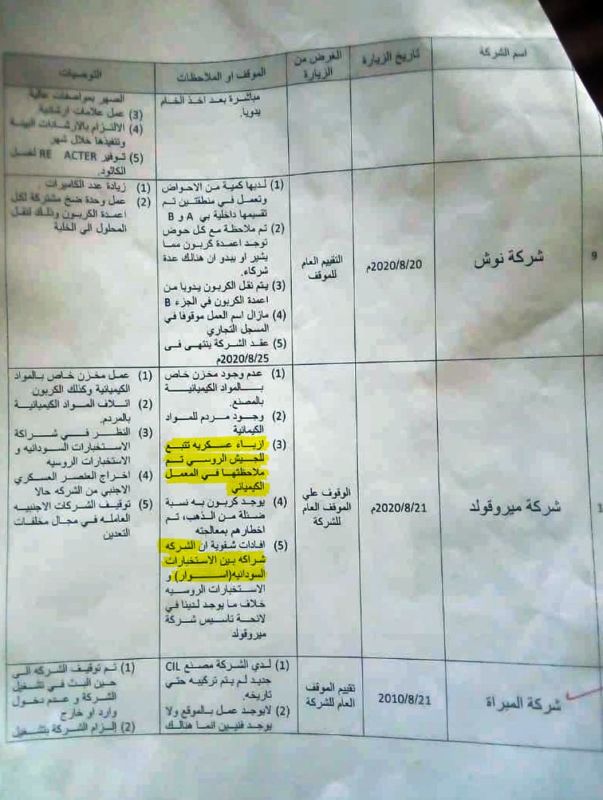 اسم الشركة
تاريخ الزيارة
الغرض من
الزيارة
الموقف او الملاحظات
التوصيات
مباشرة بعد اخذ الخام
يدويا.
الصهر بمواصفات عالية
(3) عمل علامات ارشادية
(4) الالتزام بالارشادات البيئة
وتنفيذها خلال شهر
(5) توفير RE ACTER لغسل
الكاثود.
9
شركة نوش
2020/8/20م
التقييم العام
للموقف
(1) لديها كمية من الاحواض
وتعمل في منطقتين تم
تقسيمها داخلية بي A و B
(2) تم ملاحظة مع كل حوض
توجد اعمدة كربون مما
يشير او يبدو ان هنالك عدة
شركاء.
(3) يتم نقل الكربون يدويا من
اعمدة الكربون في الجزء B
(4) مازال اسم العمل موقوفا في
السجل التجاري
(5) عقد الشركة ينتهى فى
2020/8/25م
(1) زيادة عدد الكاميرات
(2) عمل وحدة ضخ مشتركة لكل
اعمدة الكربون وذلك لنقل
المحلول الي الخلية
شركة ميروقولد
2020/8/21م
الوقوف علي
الموقف العام
للشركة
(1) عدم وجود مخزن خاص
بالمواد الكيميائية
بالمصنع.
(2) وجود مردم للمواد
الكيمائية
(3) ازياء عسكريه تتبع
للجيش الروسي تم
ملاحظتها في المعمل
الكيميائي
(4) يوجد كربون به نسبة
ضئلة من الذهب، تم
اخطارهم بمعالجته
(5) افادات شفوية ان الشركه
شراكه بين الاستخبارات
السودانيه(اسوار) و
الاستخبارات الروسيه
خلاف ما يوجد لدينا في
لائحة تاسيس شركة
ميروقولد
(1) عمل مخزن خاص بالمواد
الكيميائية وكذلك الكربون
(2) اتلاف المواد الكيميائية
بالمردم.
(3) النظر في شراكة
الاستخبارات السودانيه و
الاستخبارات الروسيه
(4) اخراج العنصر العسكري
الاجنبي من الشركه حالا
(5) توقيف الشركات الاجنبيه
العامله في مجال مخلفات
التعدين
شركة المبراة
2010/8/21
تقييم الموقف
العام للشركة
(1) لدي الشركة مصنع CIL
جديد لم يتم تركيبه حتي
تاريخه.
(2) لايوجد عمل بالموقع ولا
يوجد فنيين انما هنالك
(1) تم توقيف الشركه الي
حين البث في تشغيل
الشركة و عدم دخول
وارد او خارج
(2) إلزام الشركة بتشغيل